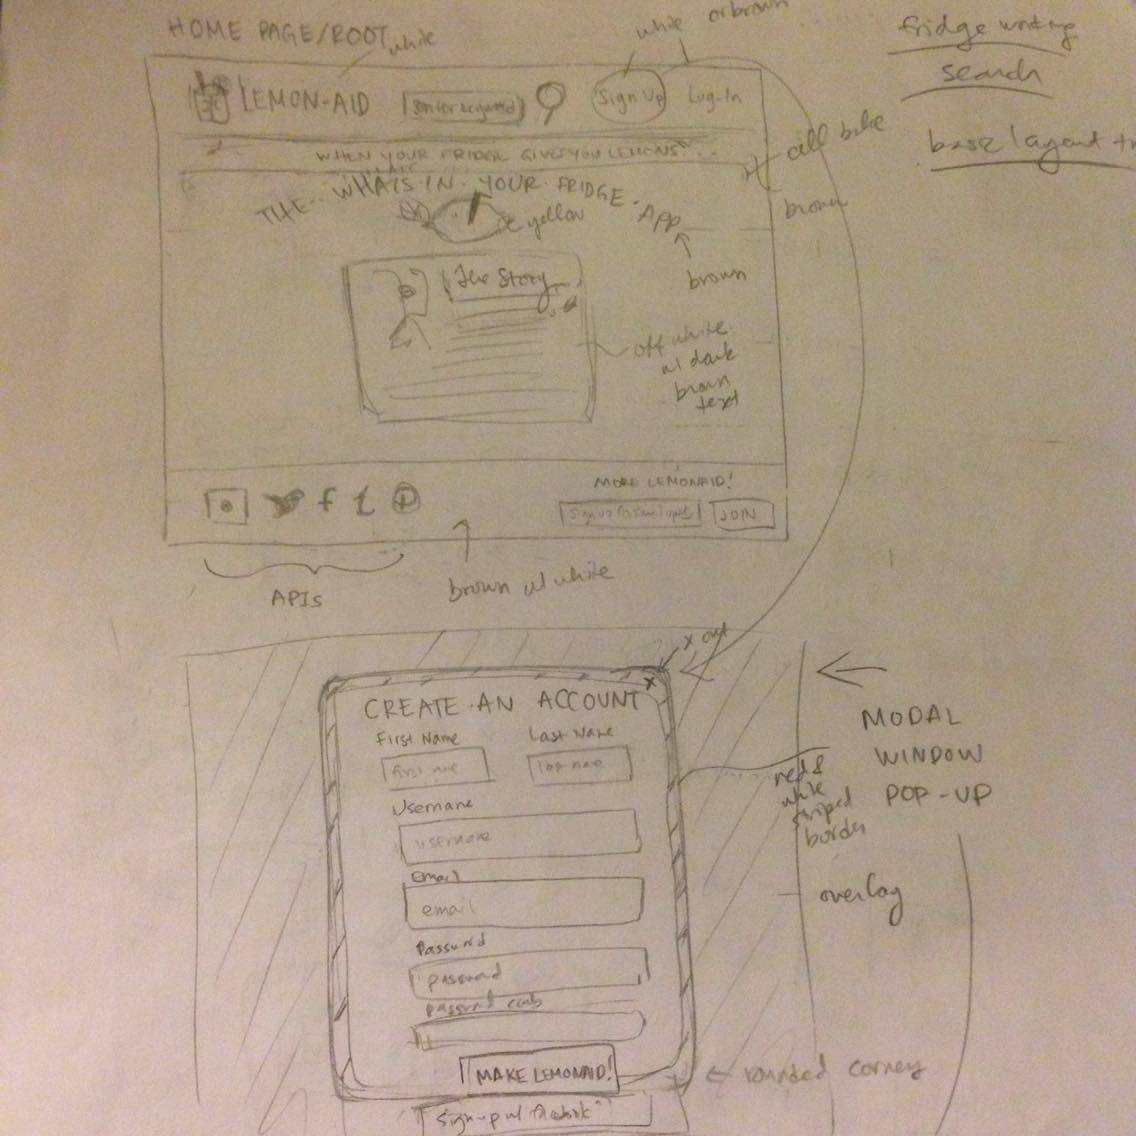 HOME PAGE/ROOT
white
white or brown
fridge writing
search
base layout
LEMON-AID
Sign Up
Log-In
WHEN YOUR FRIDGE GIVES YOU LEMONS...
brown
THE.. WHATS.IN.YOUR.FRIDGE.APP
yellow
brown
The Story
off white
w/ dark
brown
text
MORE LEMONAID!
JOIN
APIs
brown w/ white
x out
x
CREATE.AN ACCOUNT
First Name
Last Name
first name
last name
Username
username
Email
email
Password
password
password
MAKE LEMONAID!
Sign-up w/ facebook
MODAL
WINDOW
POP-UP
red &
white
striped
border
overlay
rounded corners